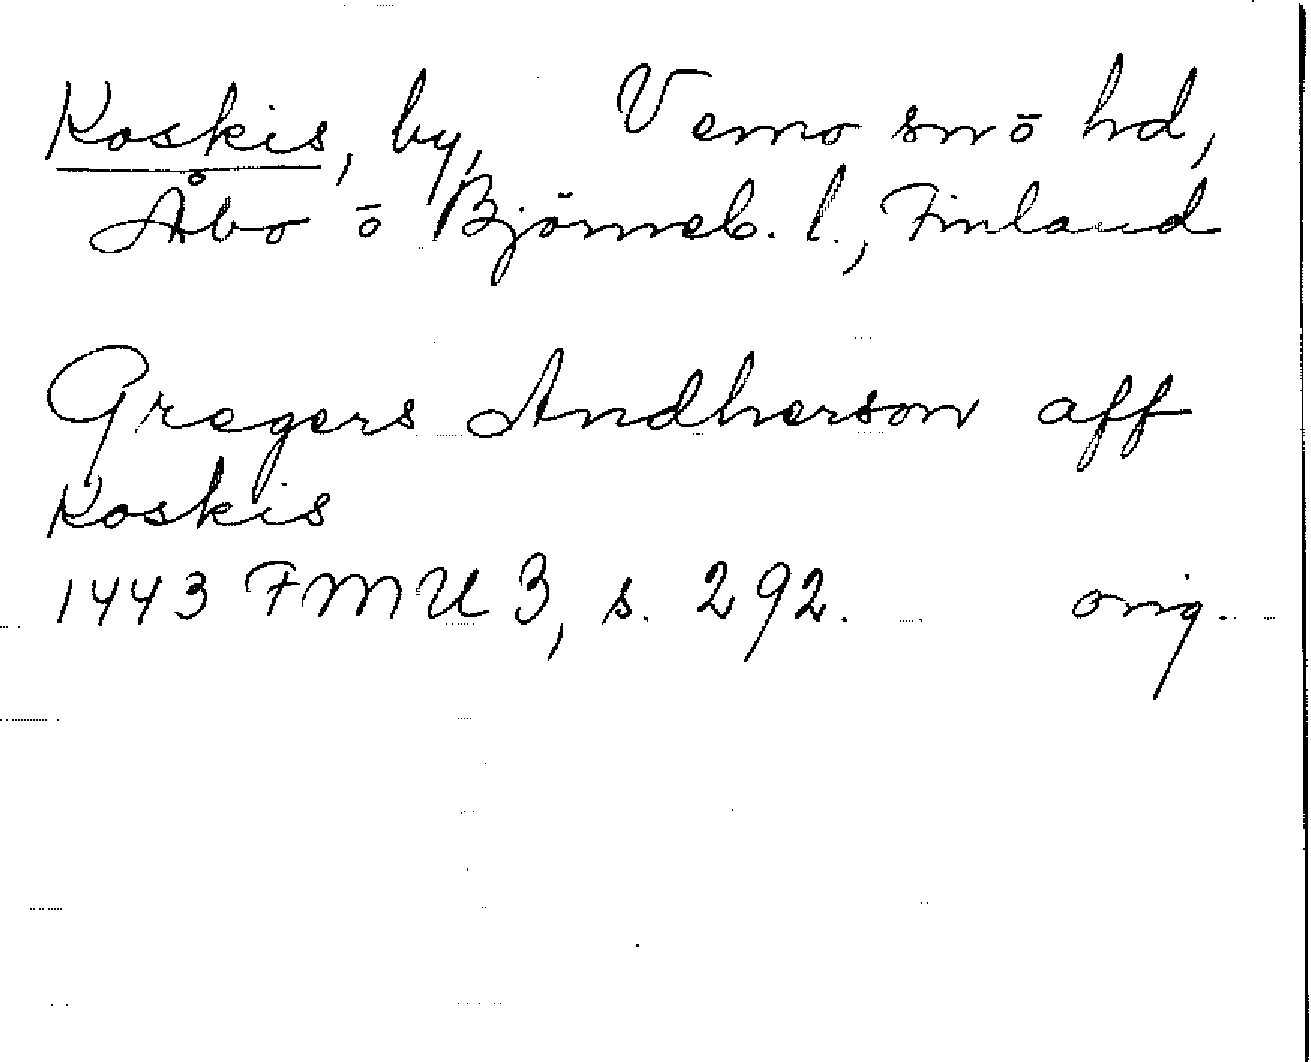 Koskis, by, Vemo sn o hd,
Åbo o Björneb. l., Finland
Gregers Andherson aff
Koskis
1443 FMU 3, s. 292. orig.